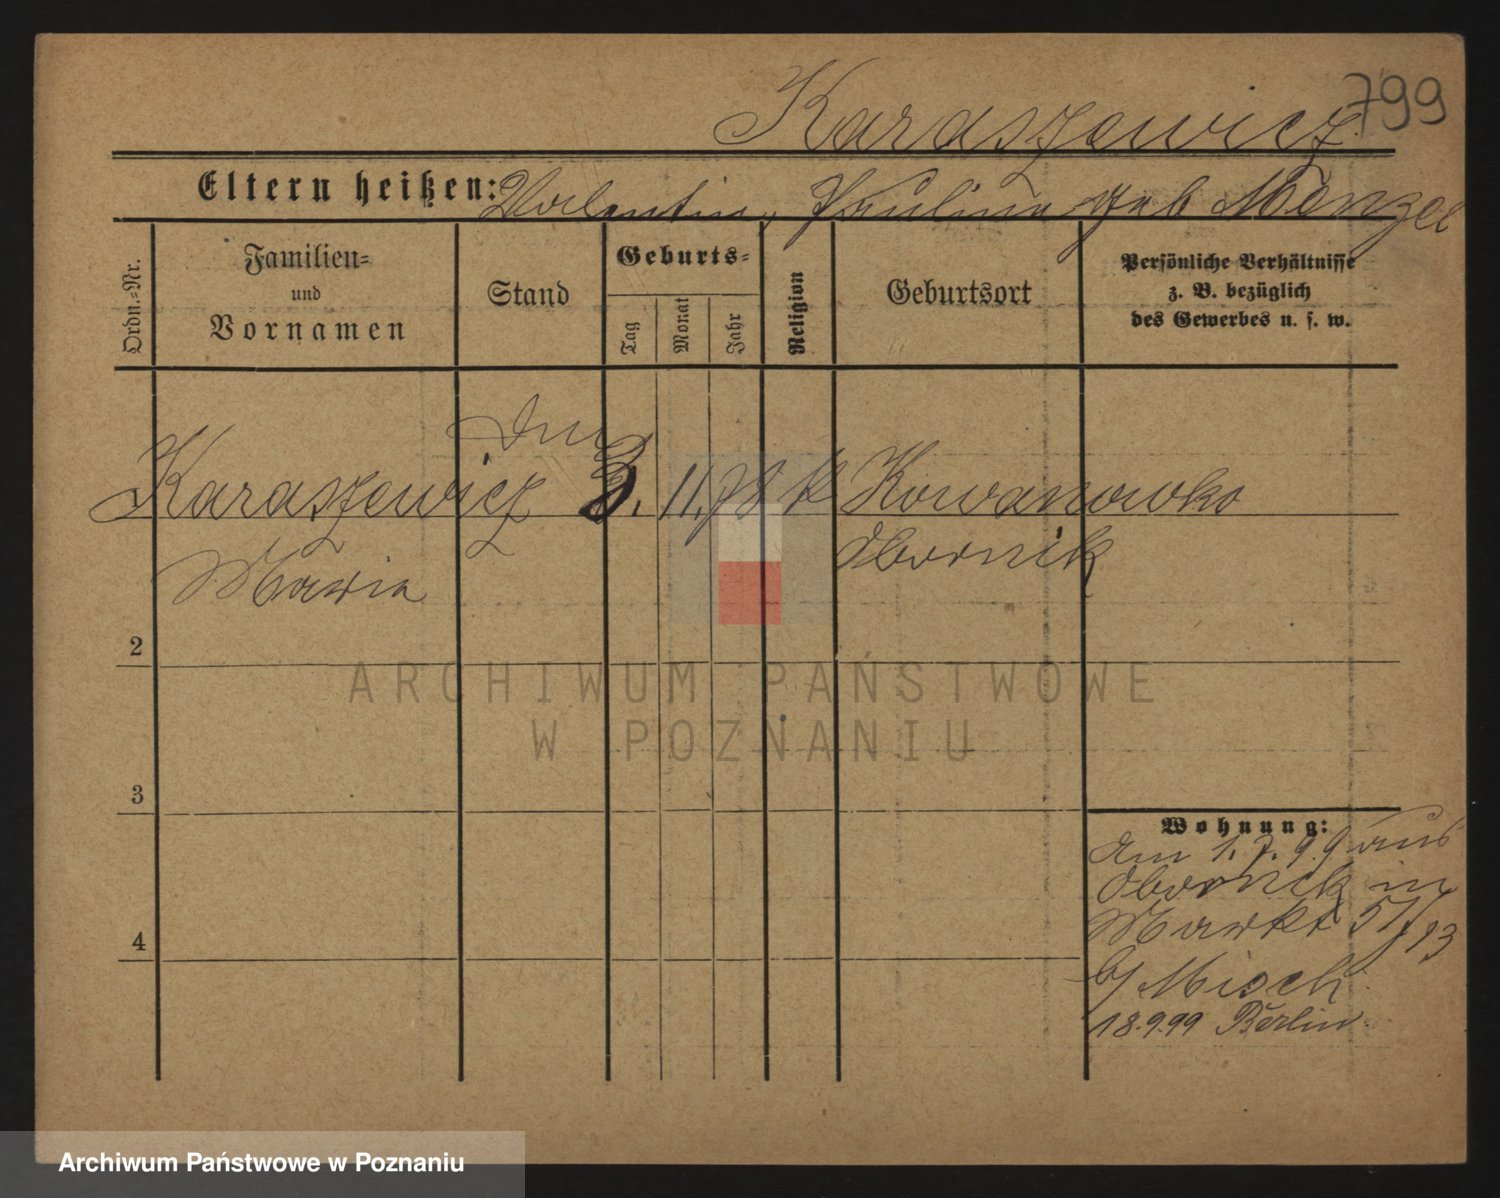 799
Karaszewicz
Eltern heißen: Valentin, Paulina geb Menzel
Ordn.-Nr.
Familien-
und
Vornamen
Stand
Geburts-
Tag
Monat
Jahr
Religion
Geburtsort
Persönliche Verhältnisse
z. B. bezüglich
des Gewerbes u. s. w.
Karaszewicz 3. 11. 78 k Kowanowko
Maria Obornik
2
3
4
Wohnung:
Am 1. 7. 99 aus
Obornik in
Markt 51/
b/ Misch
18.9.99 Berlin.
ARCHIWUM PAŃSTWOWE
W POZNANIU
Archiwum Państwowe w Poznaniu